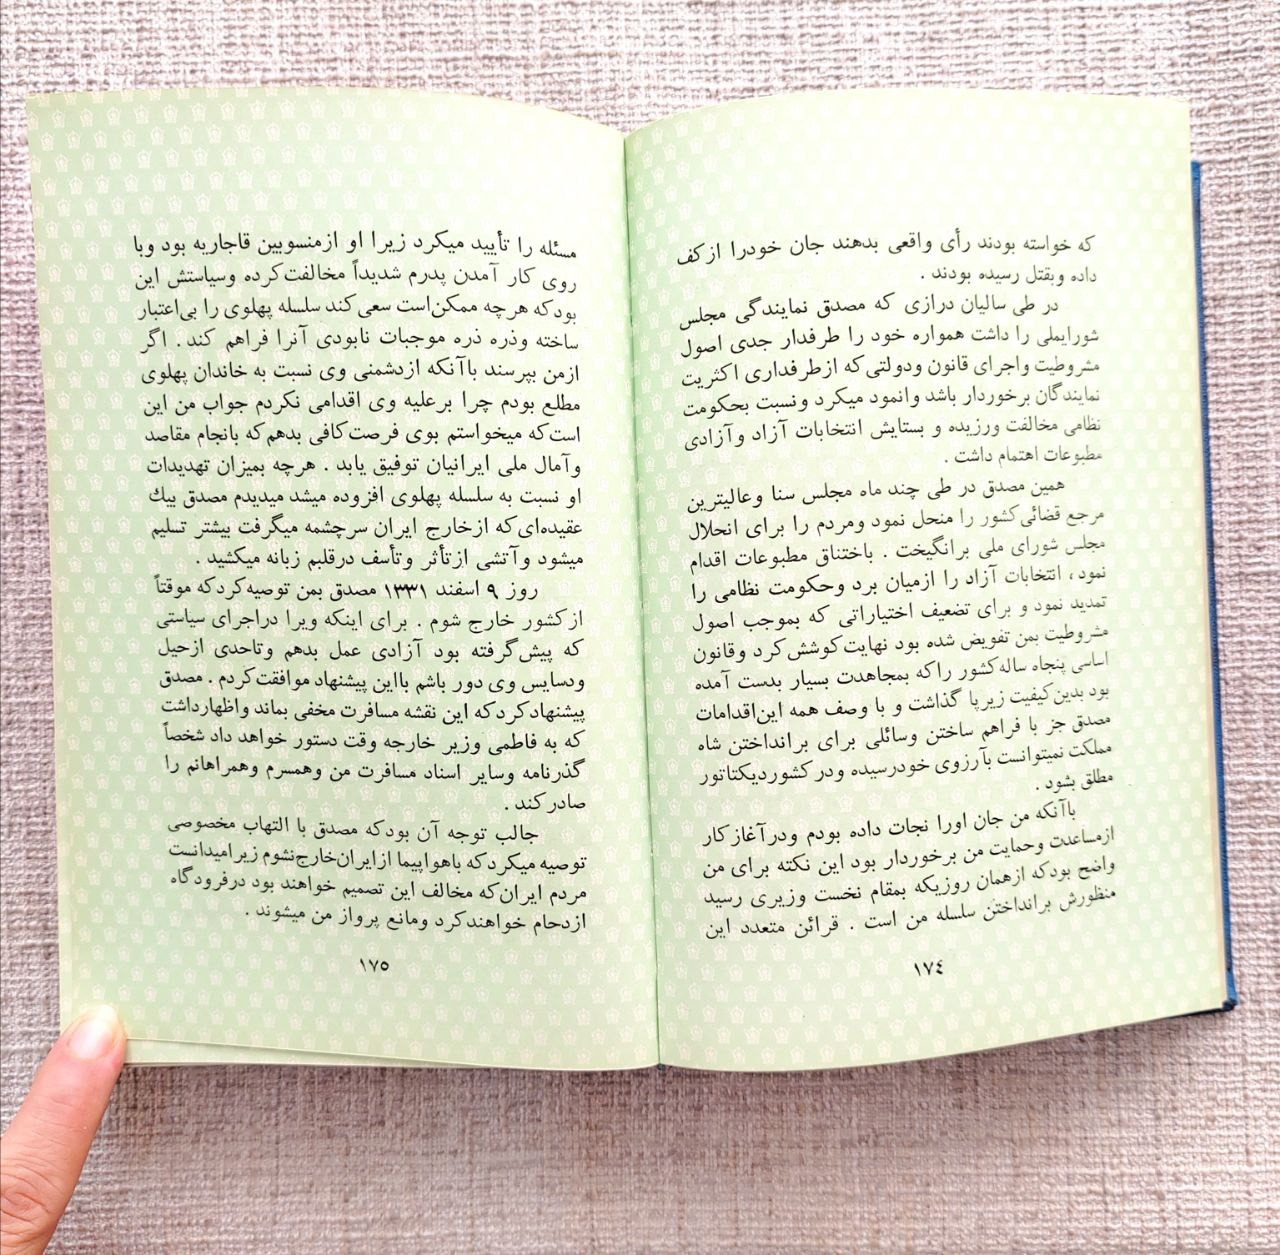 که خواسته بودند رأی واقعی بدهند جان خودرا ازکف
داده وبقتل رسیده بودند .
در طی سالیان درازی که مصدق نمایندگی مجلس
شورایملی را داشت همواره خود را طرفدار جدی اصول
مشروطیت واجرای قانون ودولتی که ازطرفداری اکثریت
نمایندگان برخوردار باشد وانمود میکرد ونسبت بحکومت
نظامی مخالفت ورزیده و بستایش انتخابات آزاد وآزادی
مطبوعات اهتمام داشت .
همین مصدق در طی چند ماه مجلس سنا وعالیترین
مرجع قضائی کشور را منحل نمود ومردم را برای انحلال
مجلس شورای ملی برانگیخت . باختناق مطبوعات اقدام
نمود ، انتخابات آزاد را ازمیان برد وحکومت نظامی را
تمدید نمود و برای تضعیف اختیاراتی که بموجب اصول
مشروطیت بمن تفویض شده بود نهایت کوشش کرد وقانون
اساسی پنجاه ساله کشور راکه بمجاهدت بسیار بدست آمده
بود بدین کیفیت زیرپا گذاشت و با وصف همه این اقدامات
مصدق جز با فراهم ساختن وسائلی برای برانداختن شاه
مملکت نمیتوانست بآرزوی خودرسیده ودر کشوردیکتاتور
مطلق بشود .
باآنکه من جان اورا نجات داده بودم ودرآغاز کار
ازمساعدت وحمایت من برخوردار بود این نکته برای من
واضح بودکه ازهمان روزیکه بمقام نخست وزیری رسید
منظورش برانداختن سلسله من است . قرائن متعدد این
۱۷٤
مسئله را تأیید میکرد زیرا او ازمنسوبین قاجاریه بود وبا
روی کار آمدن پدرم شدیداً مخالفت کرده وسیاستش این
بودکه هرچه ممکن است سعی کند سلسله پهلوی را بی‌اعتبار
ساخته وذره ذره موجبات نابودی آنرا فراهم کند . اگر
ازمن بپرسند باآنکه ازدشمنی وی نسبت به خاندان پهلوی
مطلع بودم چرا برعلیه وی اقدامی نکردم جواب من این
است که میخواستم بوی فرصت کافی بدهم که بانجام مقاصد
وآمال ملی ایرانیان توفیق یابد . هرچه بمیزان تهدیدات
او نسبت به سلسله پهلوی افزوده میشد میدیدم مصدق بیك
عقیده‌ای که ازخارج ایران سرچشمه میگرفت بیشتر تسلیم
میشود وآتشی ازتأثر وتأسف درقلبم زبانه میکشید .
روز ۹ اسفند ۱۳۳۱ مصدق بمن توصیه کردکه موقتاً
ازکشور خارج شوم . برای اینکه ویرا دراجرای سیاستی
که پیش گرفته بود آزادی عمل بدهم وتاحدی ازحیل
ودسایس وی دور باشم بااین پیشنهاد موافقت کردم . مصدق
پیشنهاد کرد که این نقشه مسافرت مخفی بماند واظهارداشت
که به فاطمی وزیر خارجه وقت دستور خواهد داد شخصاً
گذرنامه وسایر اسناد مسافرت من وهمسرم وهمراهانم را
صادر کند .
جالب توجه آن بودکه مصدق با التهاب مخصوصی
توصیه میکردکه باهواپیما ازایران خارج نشوم زیرا میدانست
مردم ایران که مخالف این تصمیم خواهند بود درفرودگاه
ازدحام خواهند کرد ومانع پرواز من میشوند .
۱۷۵